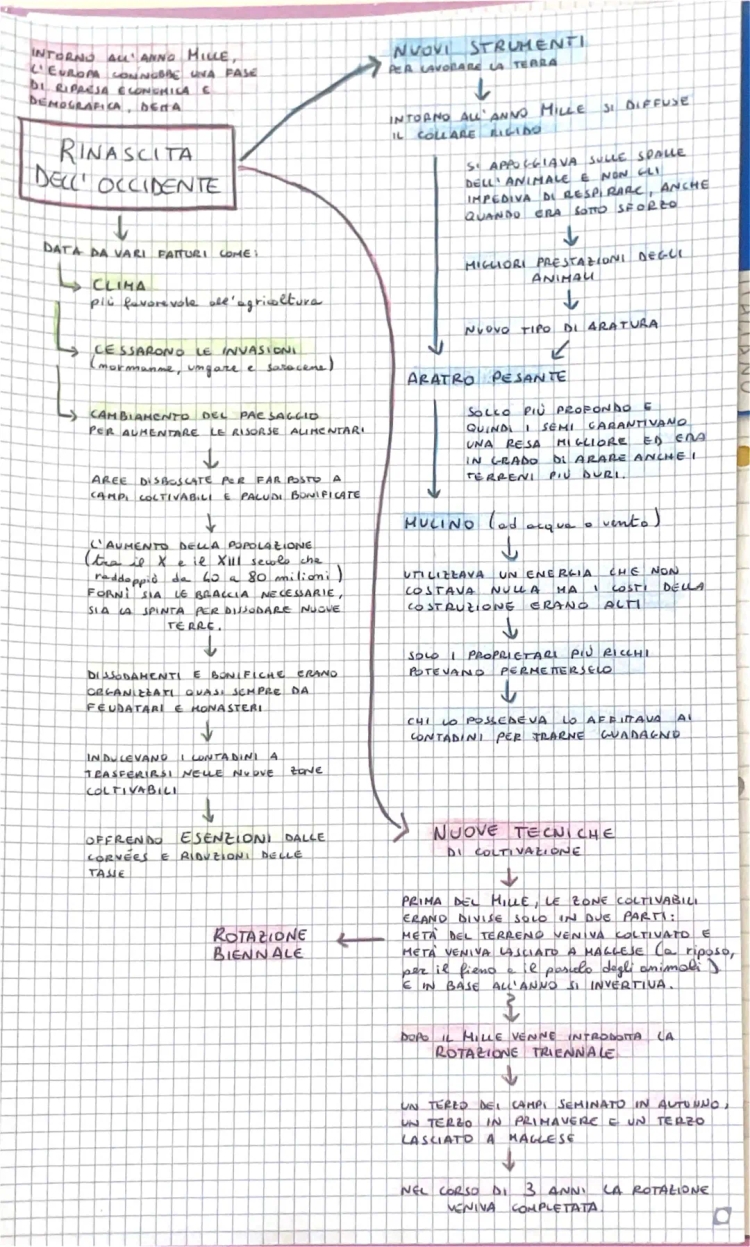 INTORNO ALL'ANNO MILLE,
L'EUROPA CONNOBBE UNA FASE
DI RIPRESA ECONOMICA E
DEMOGRAFICA, DETTA
RINASCITA
DELL'OCCIDENTE
DATA DA VARI FATTORI COME:
CLIMA
più favorevole all'agricoltura
CESSARONO LE INVASIONI
(normanne, ungare e saracene)
CAMBIAMENTO DEL PAESAGGIO
PER AUMENTARE LE RISORSE ALIMENTARI
AREE DISBOSCATE PER FAR POSTO A
CAMPI COLTIVABILI E PALUDI BONIFICATE
L'AUMENTO DELLA POPOLAZIONE
(tra il X e il XIII secolo che
raddoppiò da 40 a 80 milioni)
FORNÌ SIA LE BRACCIA NECESSARIE,
SIA LA SPINTA PER DISSODARE NUOVE
TERRE.
DISSODAMENTI E BONIFICHE ERANO
ORGANIZZATI QUASI SEMPRE DA
FEUDATARI E MONASTERI
INDUCEVANO I CONTADINI A
TRASFERIRSI NELLE NUOVE ZONE
COLTIVABILI
OFFRENDO ESENZIONI DALLE
CORVÉES E RIDUZIONI DELLE
TASSE
NUOVI STRUMENTI
PER LAVORARE LA TERRA
INTORNO ALL'ANNO MILLE SI DIFFUSE
IL COLLARE RIGIDO
SI APPOGGIAVA SULLE SPALLE
DELL'ANIMALE E NON GLI
IMPEDIVA DI RESPIRARE, ANCHE
QUANDO ERA SOTTO SFORZO
MIGLIORI PRESTAZIONI DEGLI
ANIMALI
NUOVO TIPO DI ARATURA
ARATRO PESANTE
SOLCO PIÙ PROFONDO E
QUINDI I SEMI GARANTIVANO
UNA RESA MIGLIORE ED ERA
IN GRADO DI ARARE ANCHE I
TERRENI PIÙ DURI.
MULINO (ad acqua o vento)
UTILIZZAVA UN ENERGIA CHE NON
COSTAVA NULLA MA I COSTI DELLA
COSTRUZIONE ERANO ALTI
SOLO I PROPRIETARI PIÙ RICCHI
POTEVANO PERMETTERSELO
CHI LO POSSEDEVA LO AFFITTAVA AI
CONTADINI PER TRARNE GUADAGNO
NUOVE TECNICHE
DI COLTIVAZIONE
PRIMA DEL MILLE, LE ZONE COLTIVABILI
ERANO DIVISE SOLO IN DUE PARTI:
METÀ DEL TERRENO VENIVA COLTIVATO E
METÀ VENIVA LASCIATO A MAGGESE (a riposo,
per il fieno e il pascolo degli animali)
E IN BASE ALL'ANNO SI INVERTIVA.
ROTAZIONE
BIENNALE
DOPO IL MILLE VENNE INTRODOTTA LA
ROTAZIONE TRIENNALE
UN TERZO DEI CAMPI SEMINATO IN AUTUNNO,
UN TERZO IN PRIMAVERE E UN TERZO
LASCIATO A MAGGESE
NEL CORSO DI 3 ANNI LA ROTAZIONE
VENIVA COMPLETATA.